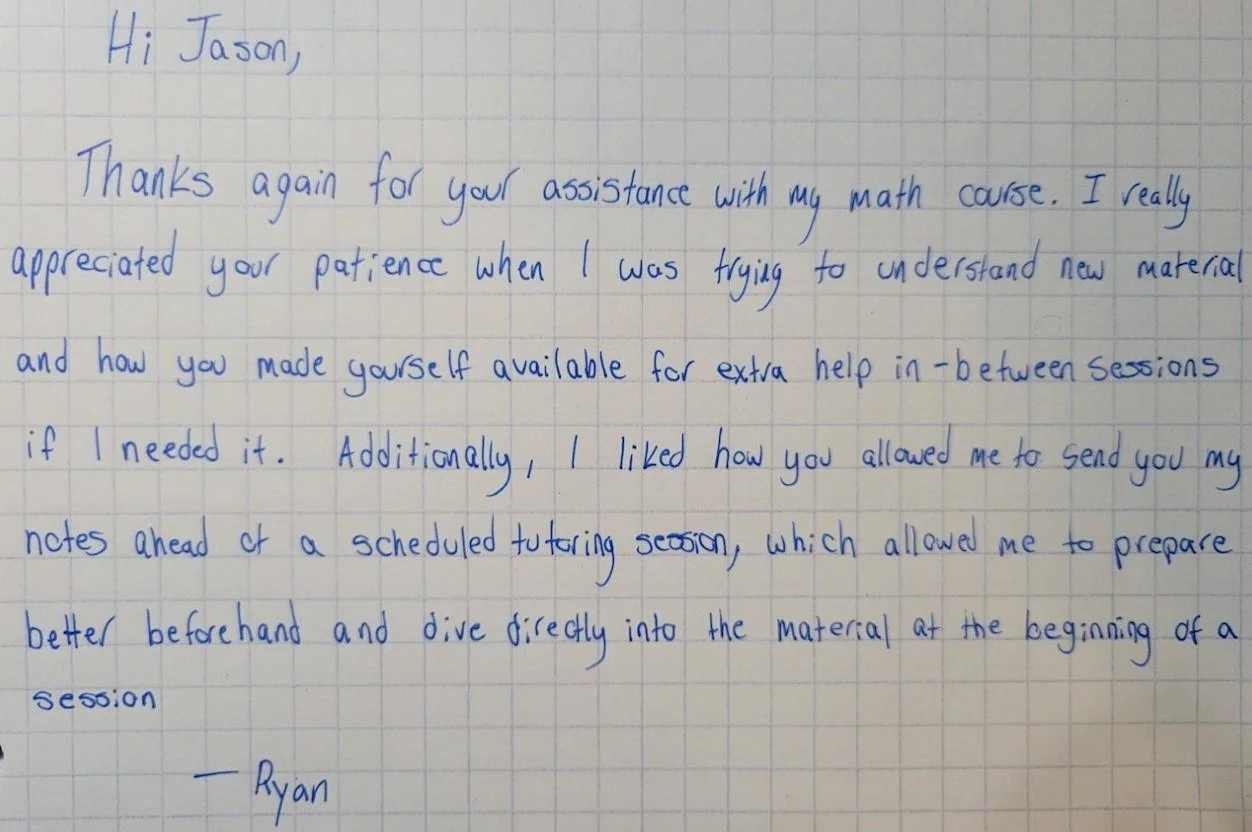 Hi Jason,
Thanks again for your assistance with my math course. I really
appreciated your patience when I was trying to understand new material
and how you made yourself available for extra help in-between sessions
if I needed it. Additionally, I liked how you allowed me to send you my
notes ahead of a scheduled tutoring session, which allowed me to prepare
better beforehand and dive directly into the material at the beginning of a
session
— Ryan